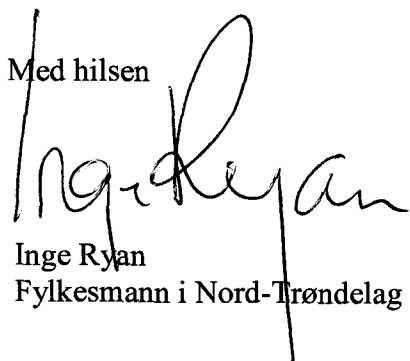 Med hilsen
Inge Ryan
Inge Ryan
Fylkesmann i Nord-Trøndelag